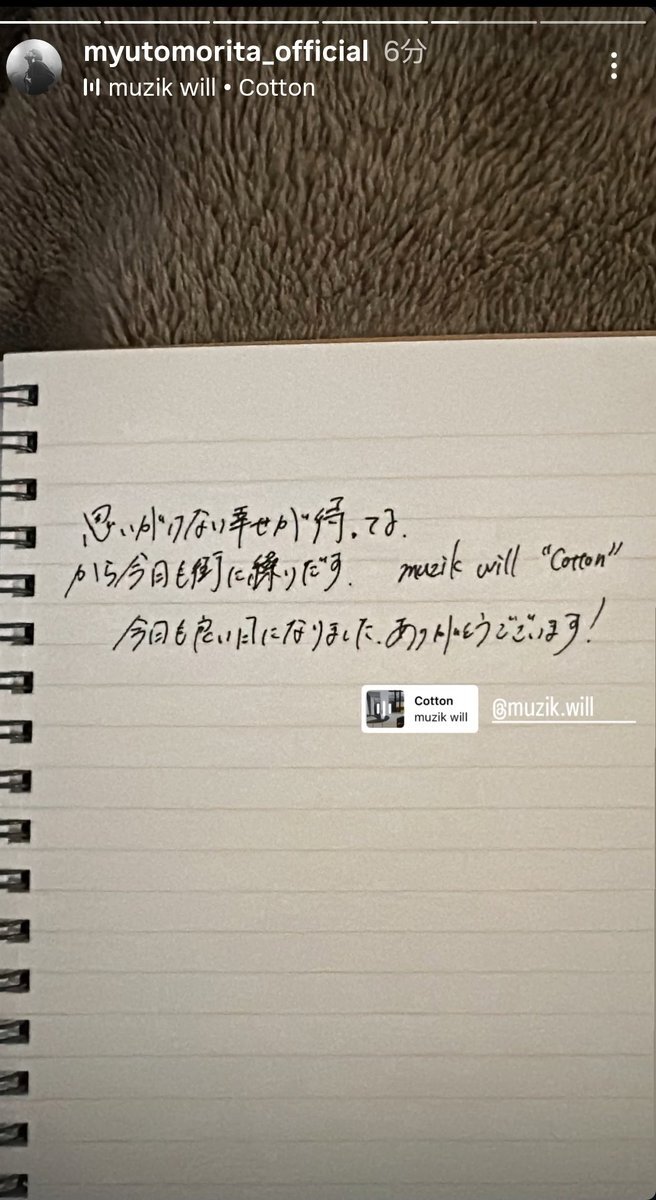 myutomorita_official 6分
muzik will • Cotton
思いがけない幸せが待ってる。
から今日も街に繰りだす。 muzik will "Cotton"
今日も良い日になりました。ありがとうございます!
Cotton
muzik will
@muzik.will